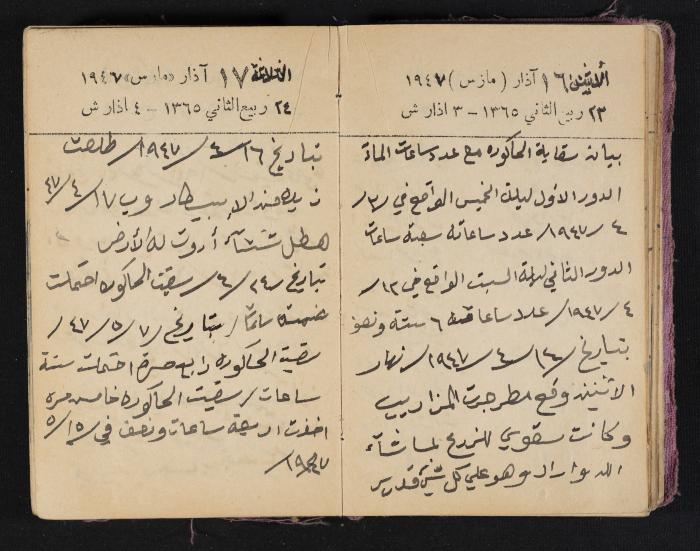 الاثنين ١٦ آذار ( مارس ) ١٩٤٧
٢٣ ربيع الثاني ١٣٦٥ – ٣ اذار ش
بيان سقاية الحاكوره مع عدد ساعات الماء
الدور الاول ليلة الخميس الواقع في /٣/
٤ /١٩٤٧/ عدد ساعاته سبعة ساعات
الدور الثاني ليلة السبت الواقع في ١٢/
٤ /١٩٤٧/ عدد ساعاته ٦ ستة ونصف
بتاريخ /١٤/ ٤/ ١٩٤٧/ نهار
الاثنين وقع مطر جرت المزاريب
وكانت سقوي للزرع لما شآء
الله واراد وهو على كل شيء قدير
الثلاثة ١٧ آذار «مارس» ١٩٤٧
٢٤ ربيع الثاني ١٣٦٥ – ٤ اذار ش
بتاريخ ١٦/ ٤/ ١٩٤٧/ طلعت
من وب ١٧/ ٤/ ٤٧
هطل شتآء أروت له الأرض
بتاريخ /٢٤/ ٤/ سقيت الحاكوره احتملت
خمسة ساعات / بتاريخ /٧/ ٥/ ٤٧/
سقيت الحاكوره رابع مرة احتملت ستة
ساعات / سقيت الحاكوره خامس مره
اخذت اربعة ساعات ونصف في /١٥/ ٥/
١٩٤٧/